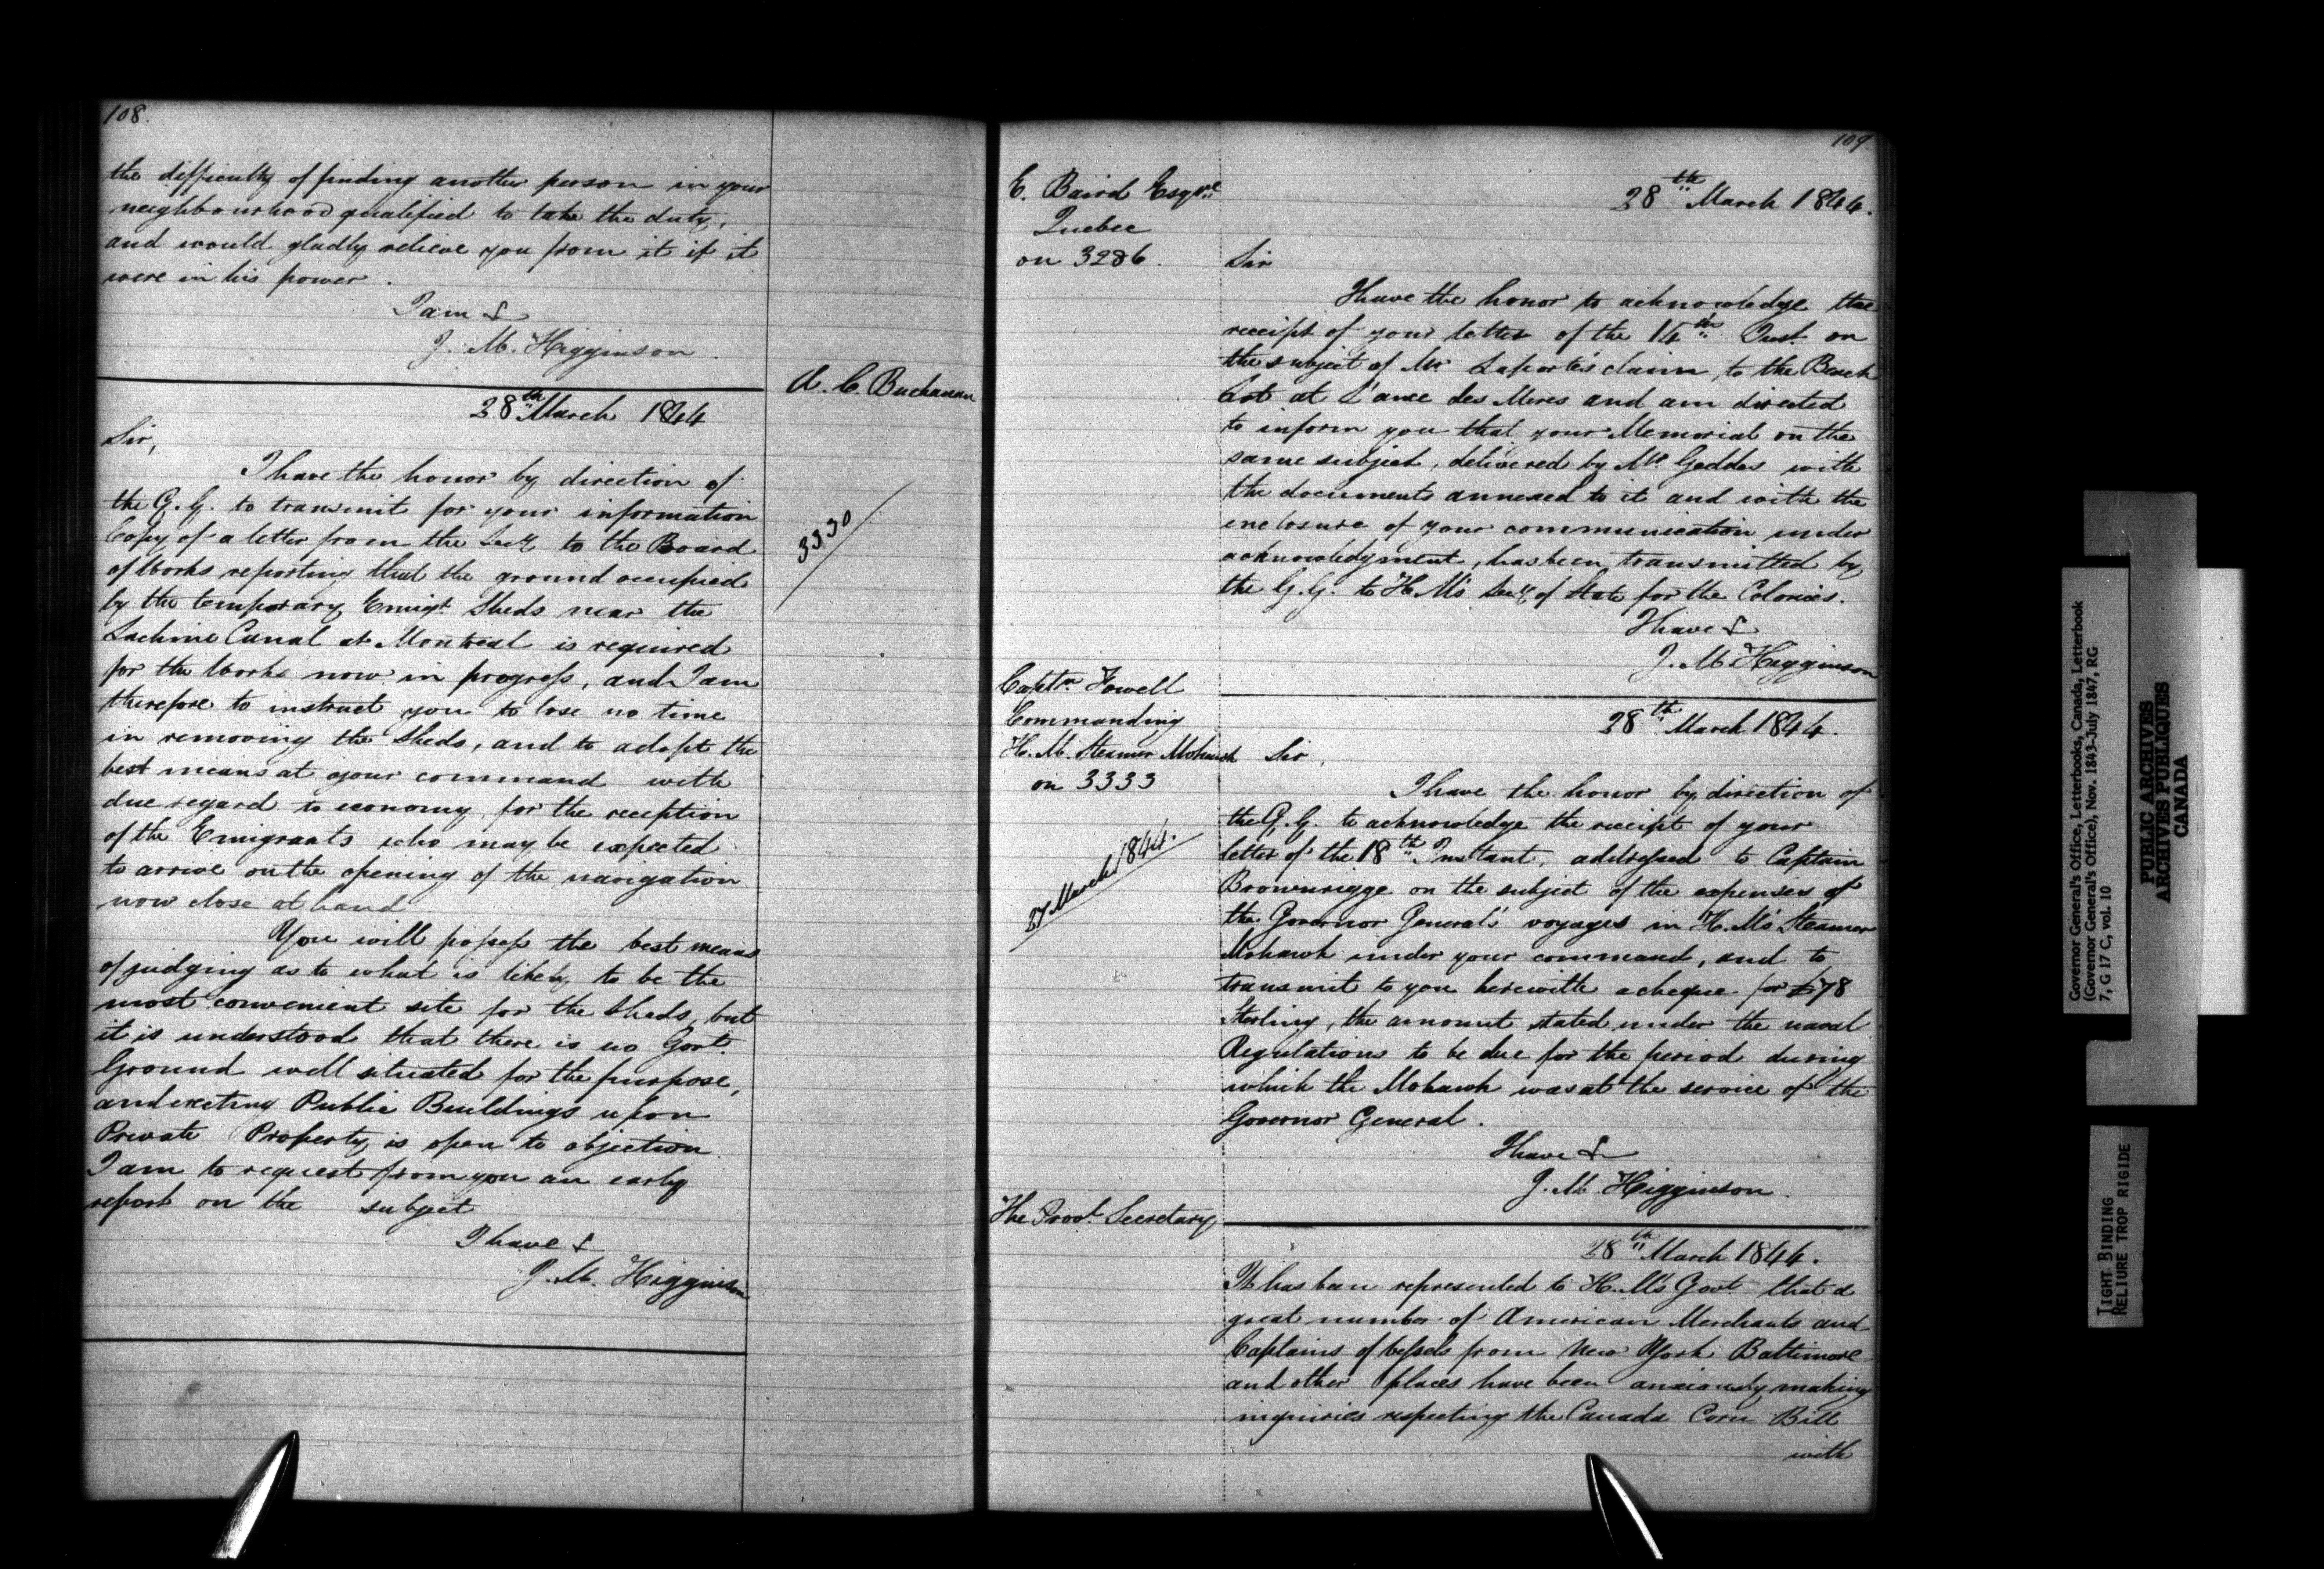 108.
the difficulty of finding another person in your
neighbourhood qualified to take the duty,
and would gladly relieve you from it if it
were in his power.
I am &
J. M. Higginson
A. C. Buchanan
28th March 1844
Sir,
I have the honor by direction of
the G. G. to transmit for your information
Copy of a letter from the Secy to the Board
of Works reporting that the ground occupied
by the temporary Emigt Sheds near the
Lachine Canal at Montreal is required
for the Works now in progress, and I am
therefore to instruct you to lose no time
in removing the Sheds, and to adopt the
best means at your command with
due regard to economy for the reception
of the Emigrants who may be expected
to arrive on the opening of the navigation
now close at hand
You will possess the best means
of judging as to what is likely to be the
most convenient site for the Sheds, but
it is understood that there is no Govt.
Ground well situated for the purpose,
and erecting Public Buildings upon
Private Property is open to objection.
I am to request from you an early
report on the subject
I have &
J. M. Higginson
3330
109
E. Baird Esqre
Quebec
on 3286.
28th March 1844.
Sir
I have the honor to acknowledge the
receipt of your letter of the 14th Inst. on
the subject of Mr Laporte's claim, to the Beach
Lot at L'anse des Meres and am directed
to inform you that your Memorial on the
same subject, delivered by Mr Geddes with
the documents annexed to it and with the
enclosure of your communication under
acknowledgment, has been transmitted by
the G. G. to H. M's Secy of State for the Colonies.
I have &
J. M. Higginson
Captn. Fowell
Commanding
H. M. Steamer Mohawk
on 3333
27 March 1844.
28th March 1844.
Sir,
I have the honor by direction of
the G. G. to acknowledge the receipt of your
letter of the 18th Instant, addressed to Captain
Brownrigge on the subject of the expenses of
the Governor General's voyages in H. M's Steamer
Mohawk under your command, and to
transmit to you herewith a cheque for £78
Sterling, the amount stated under the naval
Regulations to be due for the period during
which the Mohawk was at the service of the
Governor General.
I have &
J. M. Higginson.
The Provl. Secretary
28th March 1844.
It has been represented to H. M's Govt that a
great number of American Merchants and
Captains of Vessels from New York Baltimore
and other places have been anxiously making
inquiries respecting the Canada Corn Bill
with
Governor General's Office, Letterbooks, Canada, Letterbook
(Governor General's Office), Nov. 1843-July 1847, RG
7, G 17 C, vol. 10
PUBLIC ARCHIVES
ARCHIVES PUBLIQUES
CANADA
TIGHT BINDING
RELIURE TROP RIGIDE